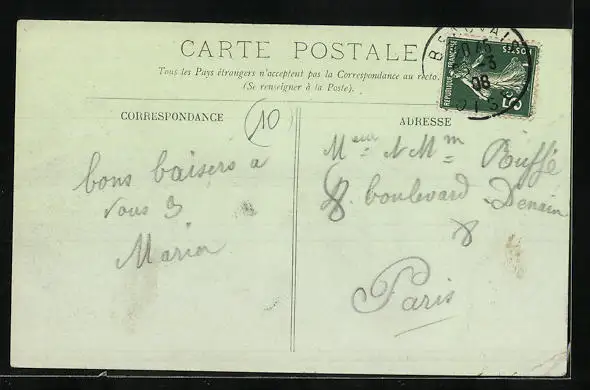 CARTE POSTALE
Tous les Pays étrangers n'acceptent pas la Correspondance au recto.
(Se renseigner à la Poste).
CORRESPONDANCE
10
ADRESSE
bons baisers a
vous 3
Maria
Meur & Mme Buffé
8. boulevard Denain
8
Paris
REPUBLIQUE FRANÇAISE
POSTES
5
3
08